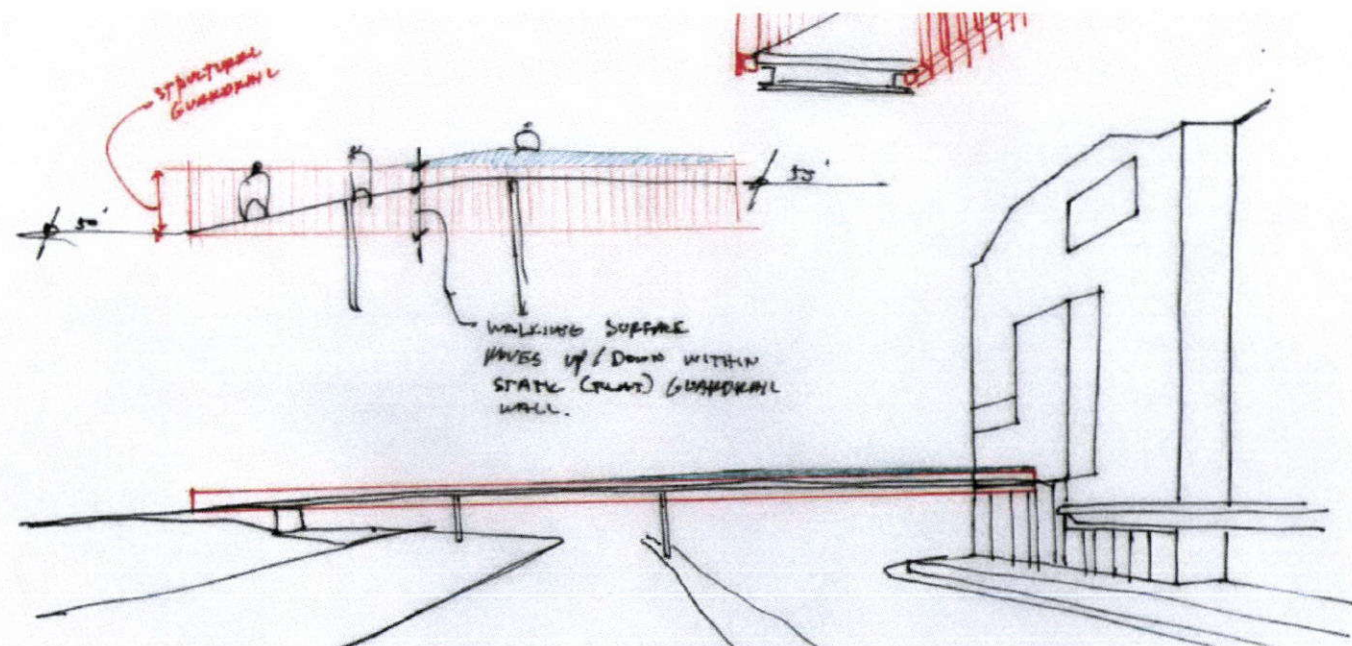 STRUCTURAL
GUARDRAIL
50'
55'
WALKING SURFACE
MOVES UP / DOWN WITHIN
STATIC (FLAT) GUARDRAIL
WALL.